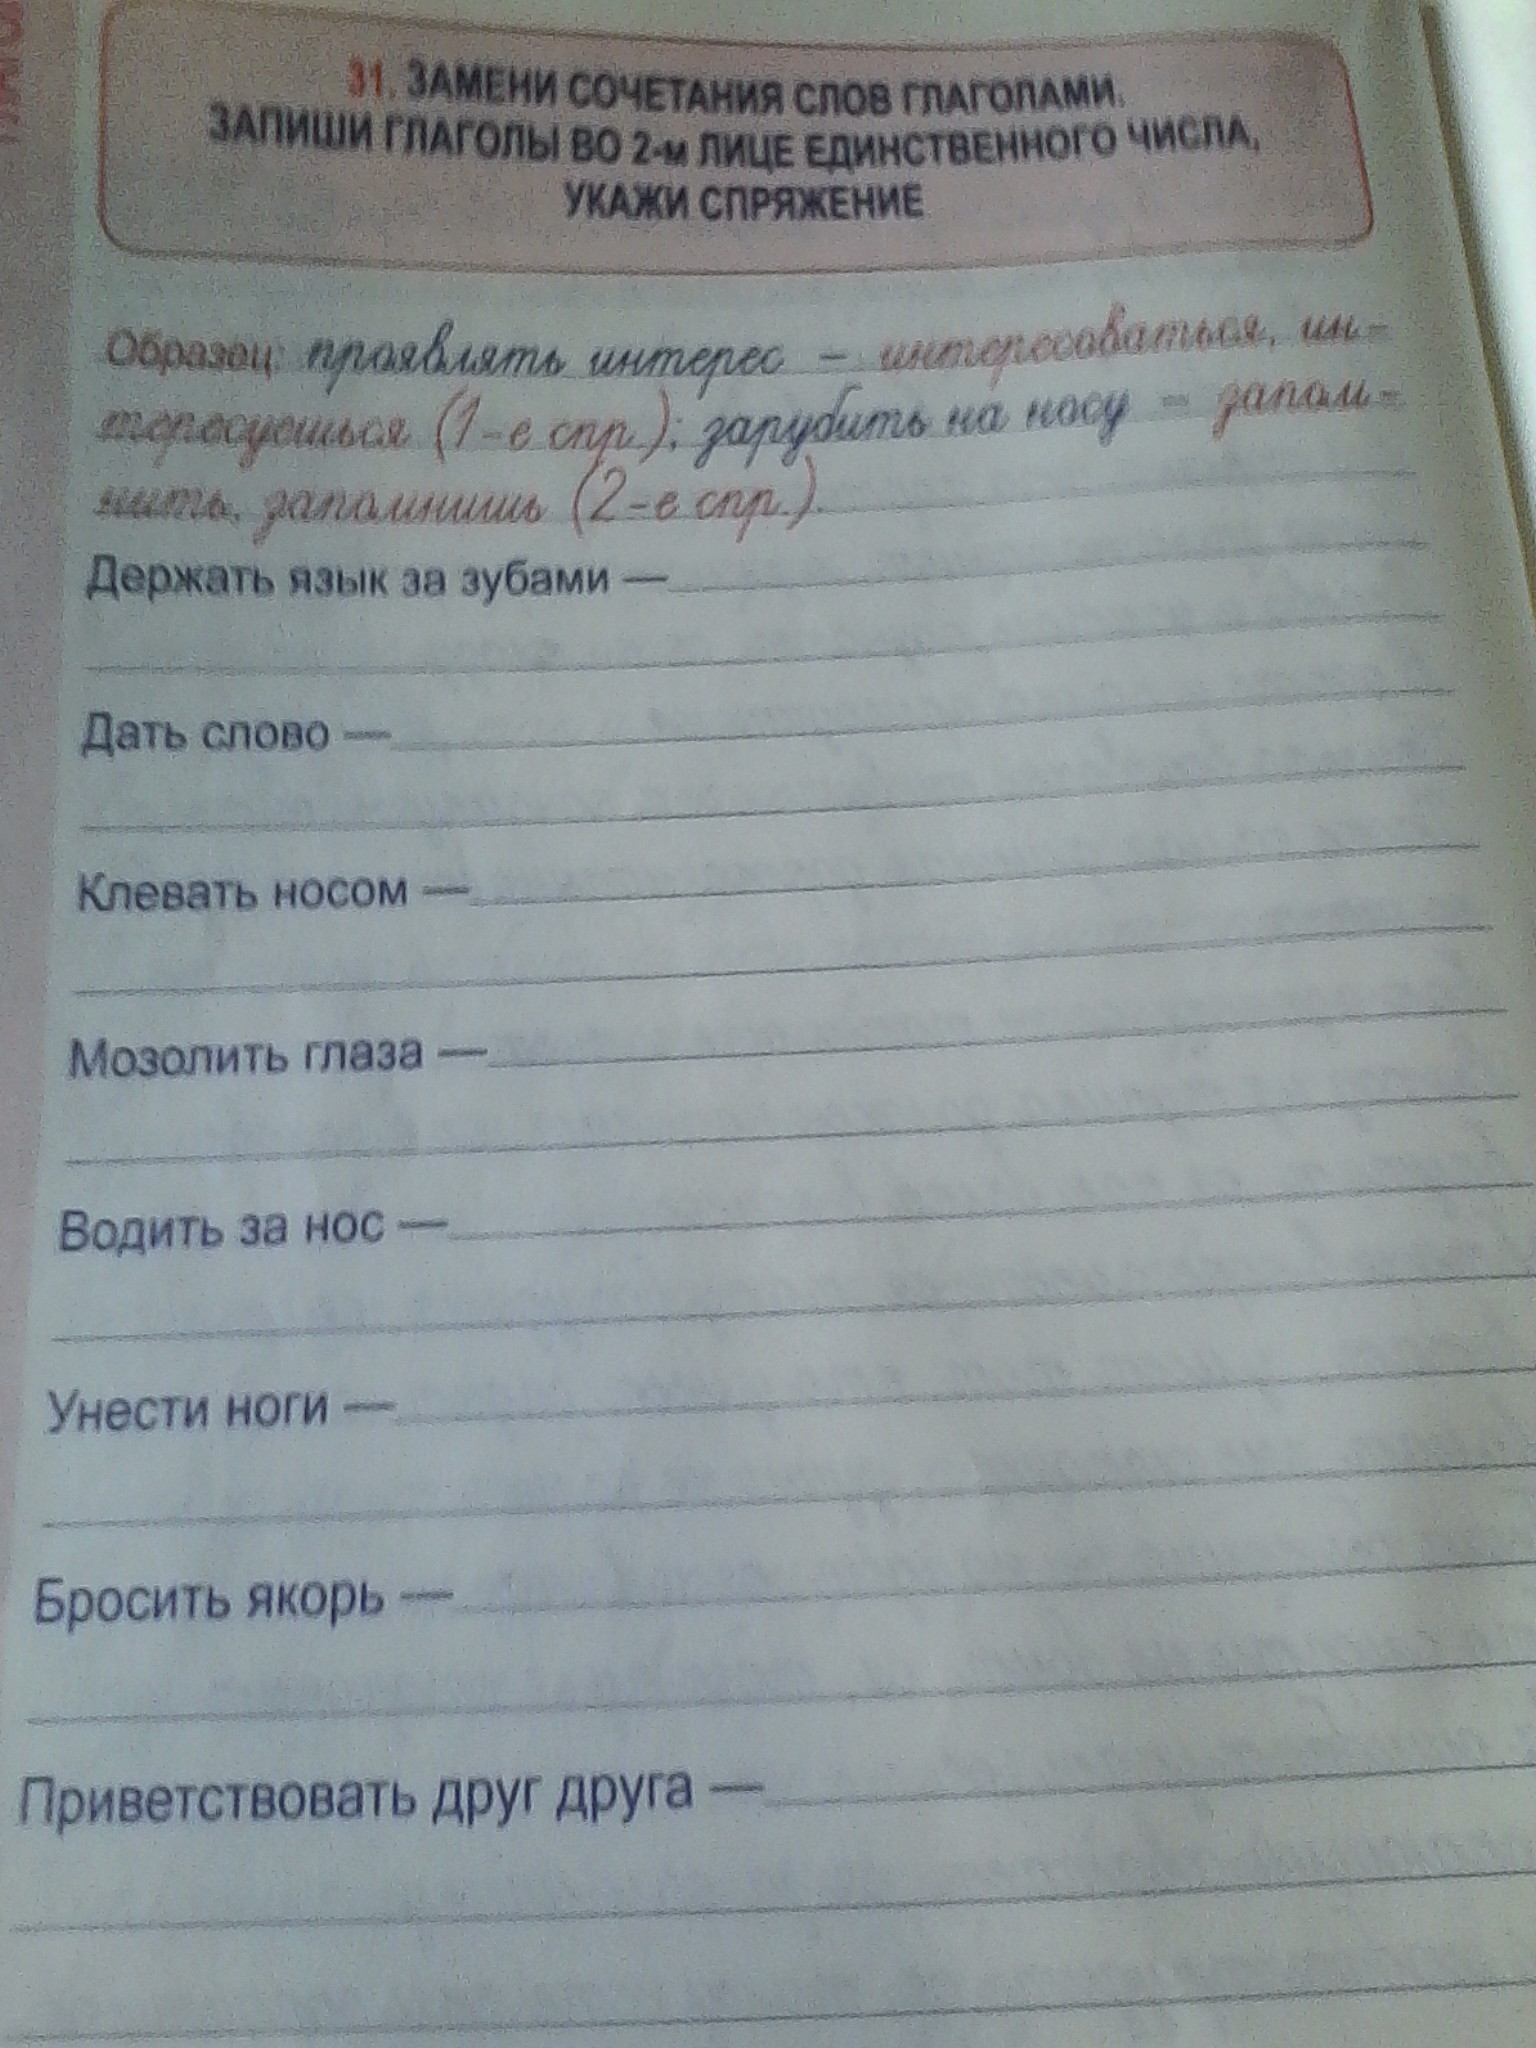 31. ЗАМЕНИ СОЧЕТАНИЯ СЛОВ ГЛАГОЛАМИ.
ЗАПИШИ ГЛАГОЛЫ ВО 2-м ЛИЦЕ ЕДИНСТВЕННОГО ЧИСЛА,
УКАЖИ СПРЯЖЕНИЕ
Образец: проявлять интерес – интересоваться, ин-
тересуешься (1-е спр.); зарубить на носу – запом-
нить, запомнишь (2-е спр.).
Держать язык за зубами —
Дать слово —
Клевать носом —
Мозолить глаза —
Водить за нос —
Унести ноги —
Бросить якорь —
Приветствовать друг друга —